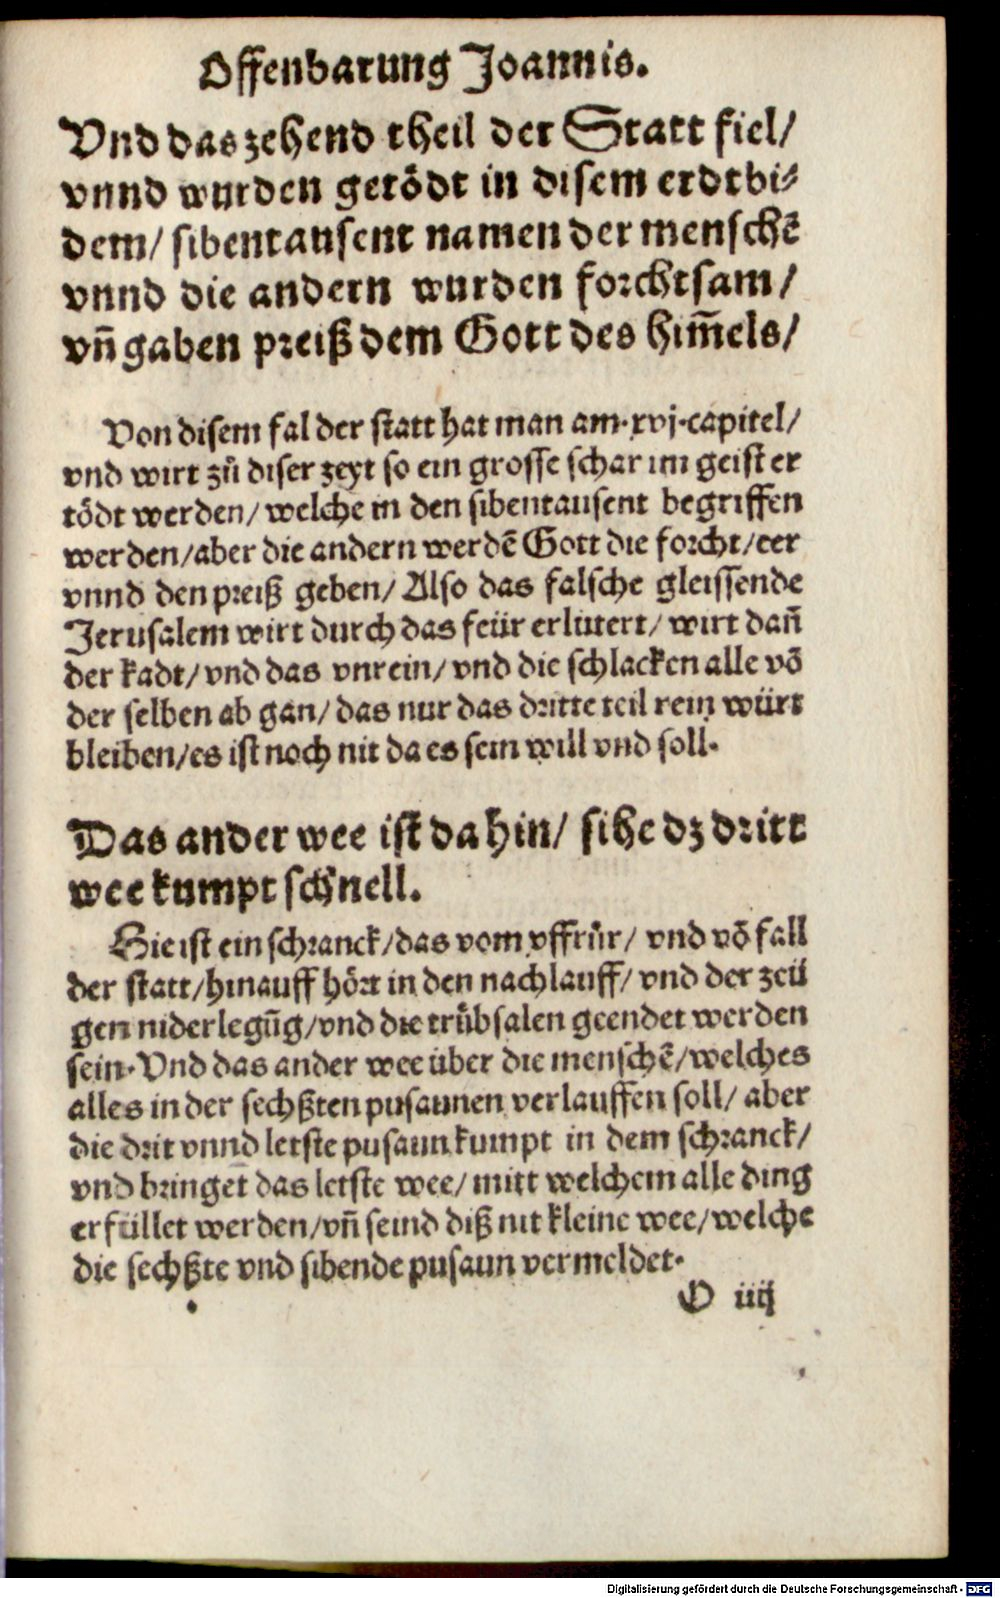 Offenbarung Joannis.
Vnd das zehend theil der Statt fiel/
vnnd wurden getödt in disem erdtbi⸗
dem/ sibentausent namen der menschē
vnnd die andern wurden forchtsam/
vn̄ gaben preiß dem Gott des him̄els/
Von disem fal der statt hat man am·xvj·capitel/
vnd wirt zů diser zeyt so ein grosse schar im geist er
tödt werden/ welche in den sibentausent begriffen
werden/aber die andern werdē Gott die forcht/eer
vnnd den preiß geben/ Also das falsche gleissende
Jerusalem wirt durch das feür erlutert/ wirt dañ
der kadt/ vnd das vnrein/ vnd die schlacken alle vō
der selben ab gan/ das nur das dritte teil rein würt
bleiben/es ist noch nit da es sein will vnd soll.
Das ander wee ist da hin/ sihe dz dritt
wee kumpt schnell.
Hie ist ein schranck/das vom vffrůr/ vnd vō fall
der statt/hinauff hört in den nachlauff/ vnd der zeü
gen niderlegūg/vnd die trůbsalen geendet werden
sein. Vnd das ander wee über die menschē/welches
alles in der sechßten pusaunen verlauffen soll/ aber
die drit vnnd letste pusaun kumpt in dem schranck/
vnd bringet das letste wee/ mitt welchem alle ding
erfüllet werden/vn̄ seind diß nit kleine wee/welche
die sechßte vnd sibende pusaun vermeldet.
O iiij
Digitalisierung gefördert durch die Deutsche Forschungsgemeinschaft - DFG